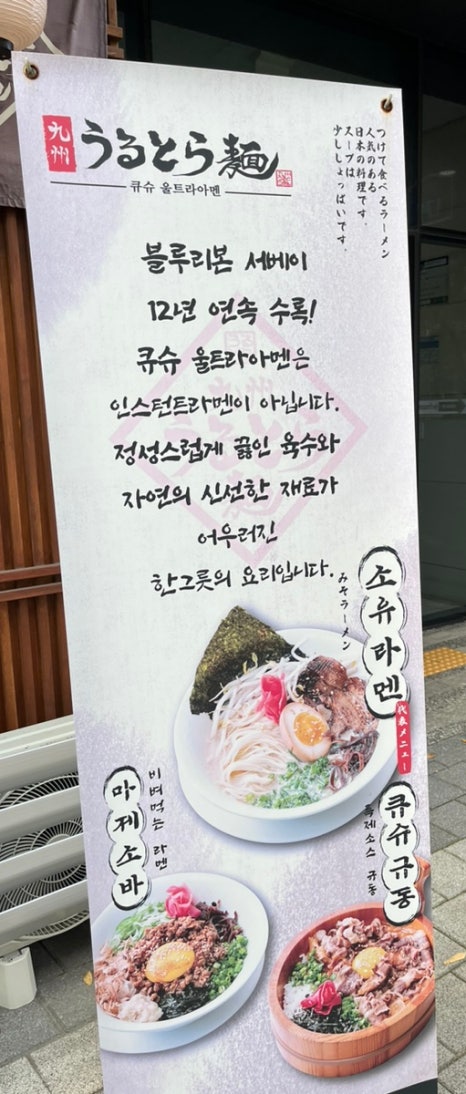 九州
うるとら麺
큐슈 울트라아멘
つけて食べるラーメン
人気のある
日本の料理です。
スープは
少ししょっぱいです。
블루리본 서베이
12년 연속 수록!
큐슈 울트라아멘은
인스턴트라멘이 아닙니다.
정성스럽게 끓인 육수와
자연의 신선한 재료가
어우러진
한그릇의 요리입니다.
소유라멘
みそラーメン
代表メニュー
마제소바
비벼먹는 라멘
큐슈규동
특제소스 규동